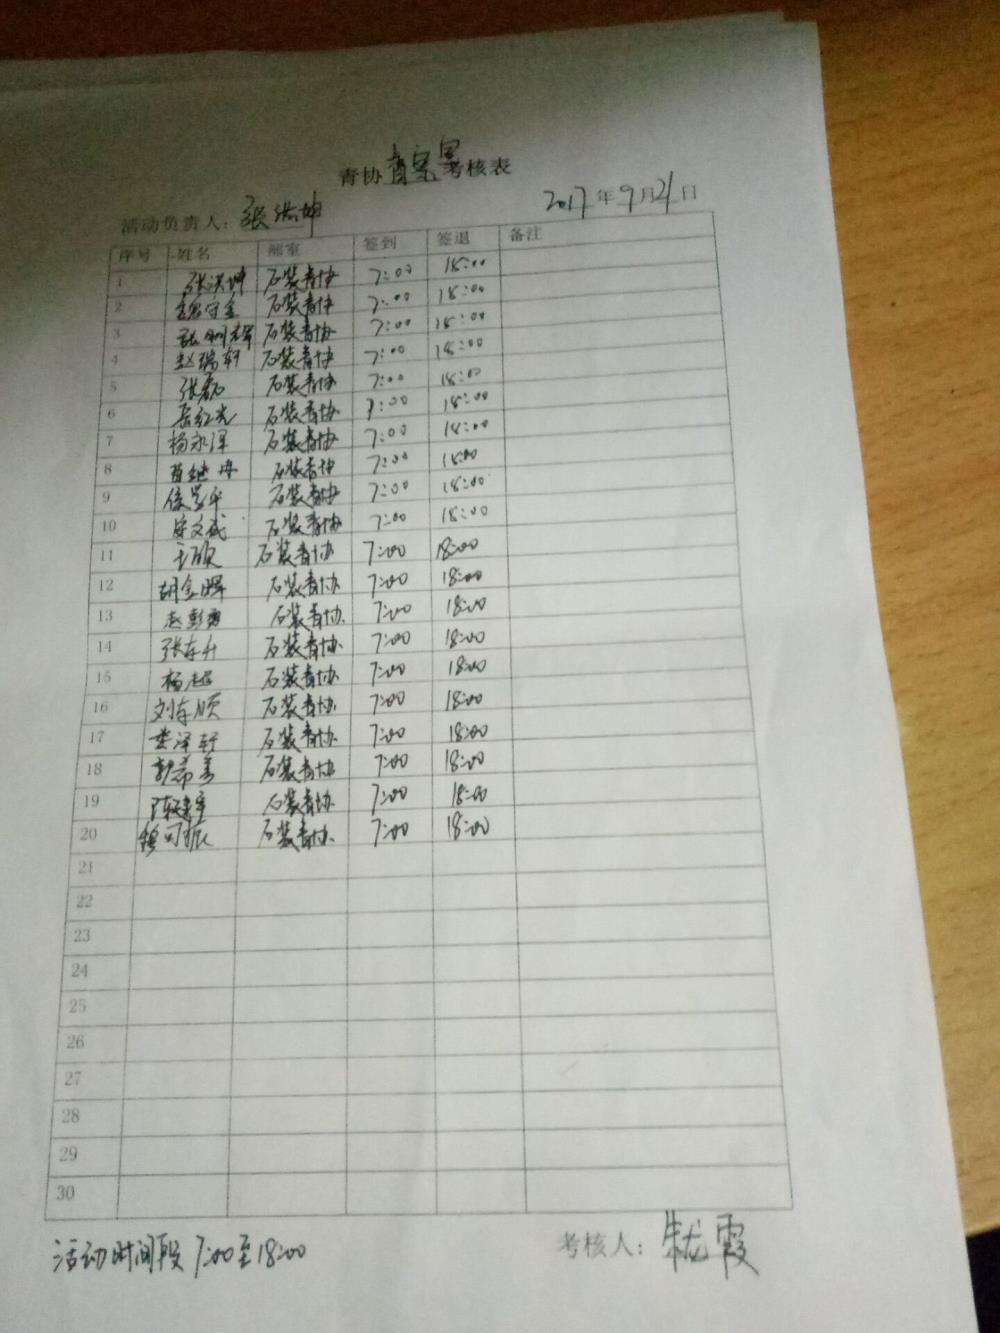 青协 考核表
2017年9月21日
活动负责人：张洪坤
序号 姓名 部室 签到 签退 备注
1 张洪坤 石装青协 7:00 18:00
2 守金 石装青协 7:00 18:00
3 张 辉 石装青协 7:00 18:00
4 赵瑞轩 石装青协 7:00 18:00
5 张磊 石装青协 7:00 18:00
6 岳红光 石装青协 7:00 18:00
7 杨永泽 石装青协 7:00 18:00
8 石装青协 7:00 18:00
9 石装青协 7:00 18:00
10 安文斌 石装青协 7:00 18:00
11 王硕 石装青协 7:00 18:00
12 胡金晖 石装青协 7:00 18:00
13 赵彭勇 石装青协 7:00 18:00
14 张东升 石装青协 7:00 18:00
15 杨超 石装青协 7:00 18:00
16 刘东顺 石装青协 7:00 18:00
17 娄泽轩 石装青协 7:00 18:00
18 郭希 石装青协 7:00 18:00
19 陈建宇 石装青协 7:00 18:00
20 穆可振 石装青协 7:00 18:00
21
22
23
24
25
26
27
28
29
30
活动时间段 7:00至18:00
考核人：朱龙霞